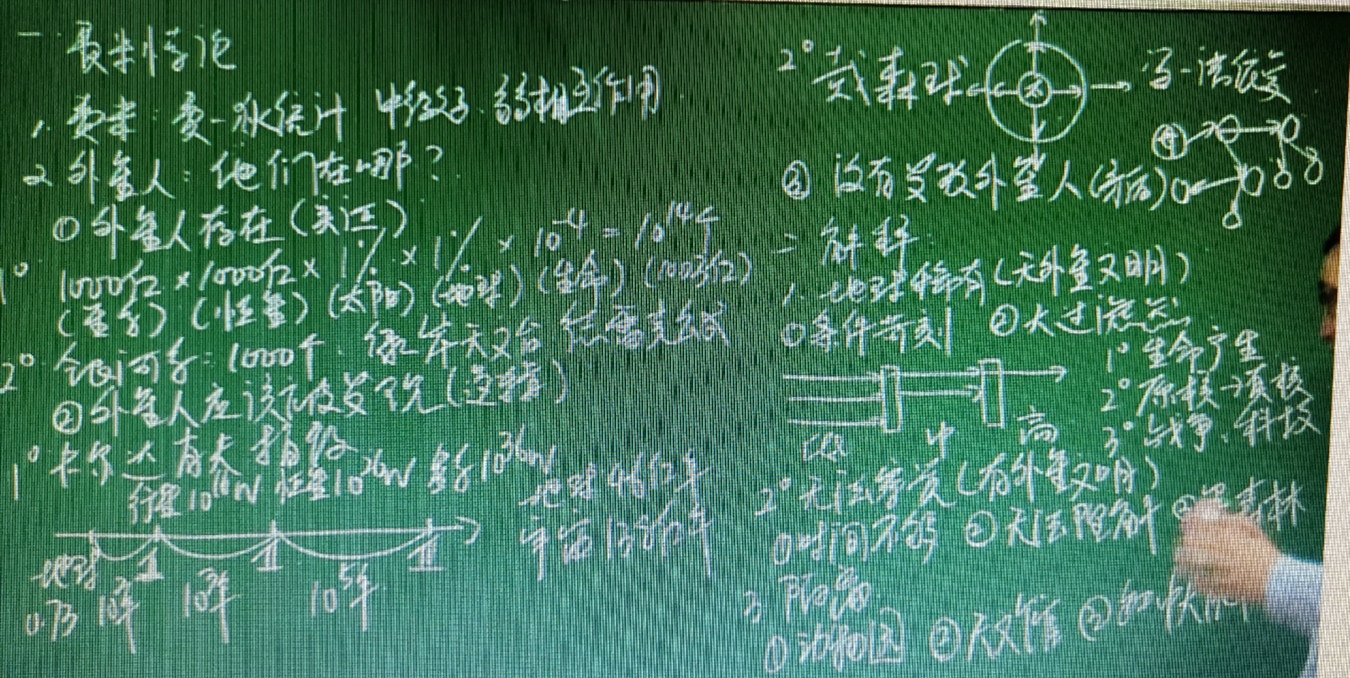 一. 费米悖论
1. 费米: 费-狄统计 中微子. 弱相互作用
2. 外星人: 他们在哪?
① 外星人存在(实证)
1° 1000亿×1000亿×1%×1%×10⁻⁴=10¹⁴个
(星系)(恒星)(太阳)(地球)(生命)(100万亿)
2° 银河系: 1000个. 绿岸天文台 德雷克公式
② 外星人应该被发现(逻辑)
1° 卡尔达肖夫指数
行星10¹⁶W 恒星10²⁶W 星系10³⁶W
地球 I II III
0.73 10²年 10³年 10⁵年
地球46亿年
宇宙138亿年
2° 戴森球 冯·诺依曼
③ 没有发现外星人(实证)
二 解释
1. 地球稀有(无外星文明)
①条件苛刻 ②大过滤器
低 中 高
1° 生命产生
2° 原核→真核
3° 战争、科技
2° 无法穿越(有外星文明)
①时间不够 ②无法理解 ③黑森林
3 阴谋
①动物园 ②天文馆 ③缸中